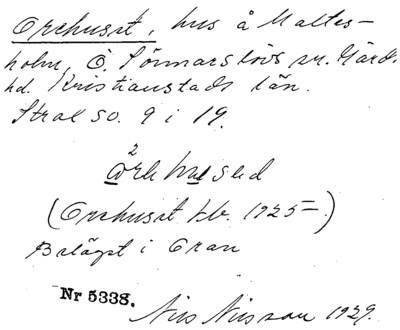 Orehuset, hus å Maltes-
holm, Ö. Sönnarslövs sn. Gärds
hd. Kristianstads län.
Stral so. 9 i 19.
2
(Orehuset kb. 1925 )
Beläget i Oran
Nr 5338.
Nils Nilsson 1929.